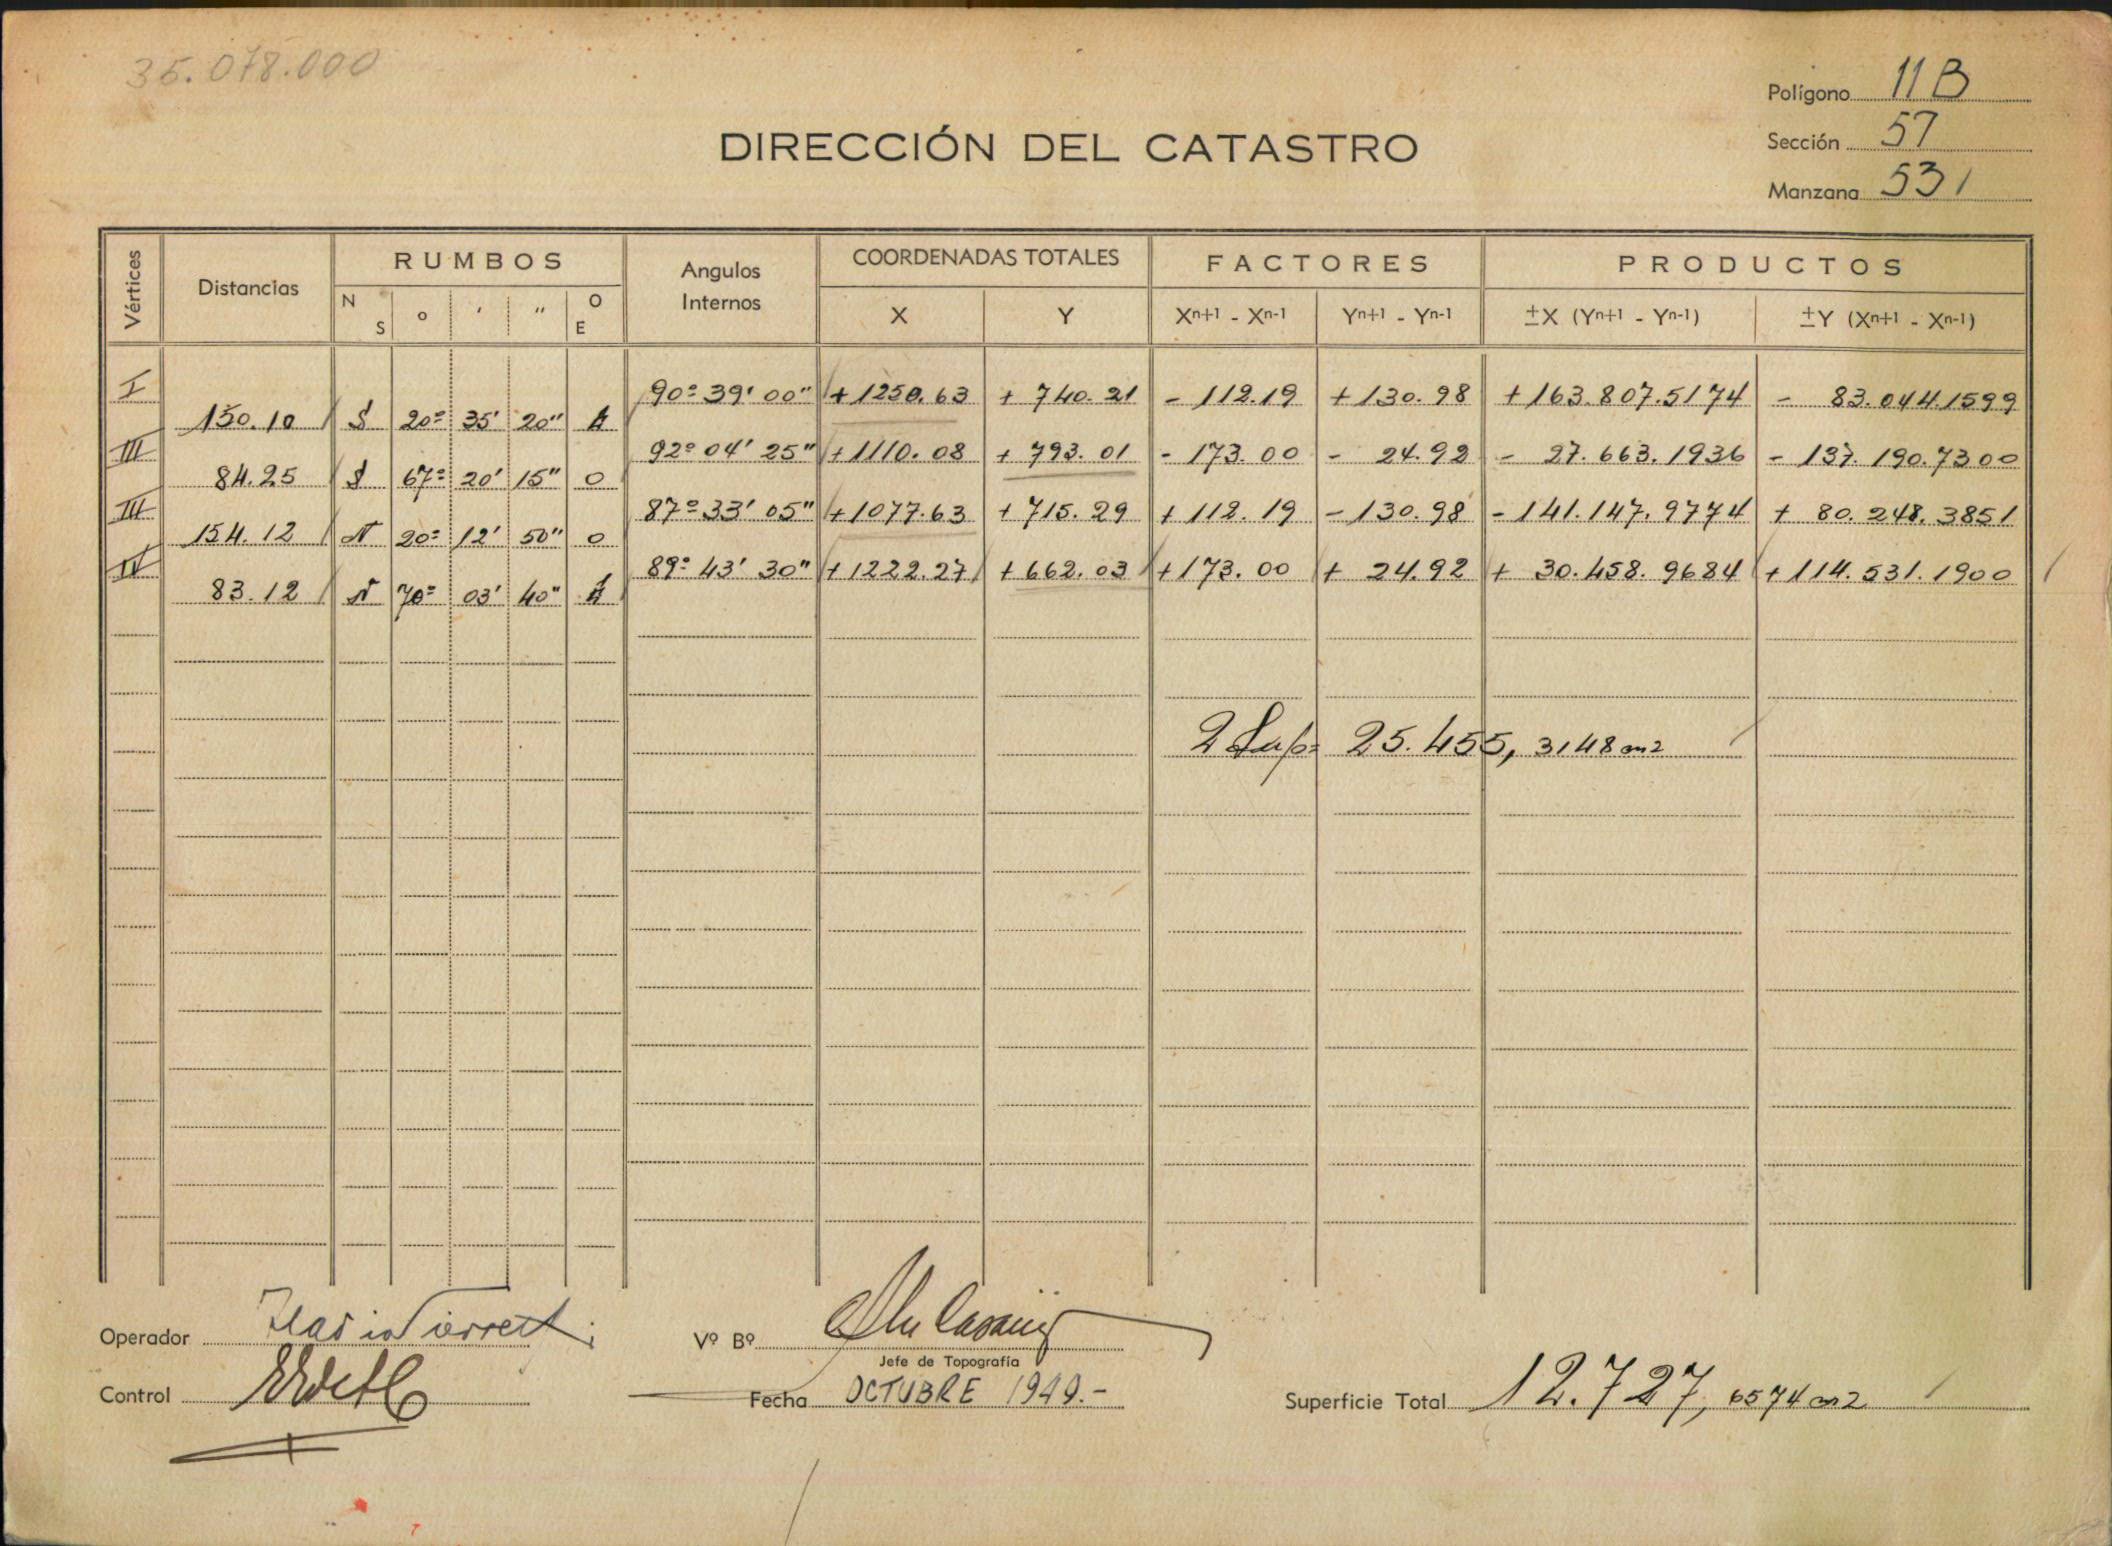 35.078.000
Polígono 11B
Sección 57
Manzana 531
DIRECCIÓN DEL CATASTRO
Vértices Distancias RUMBOS Angulos Internos COORDENADAS TOTALES FACTORES PRODUCTOS
N S o ' " O E X Y Xn+1 - Xn-1 Yn+1 - Yn-1 ±X (Yn+1 - Yn-1) ±Y (Xn+1 - Xn-1)
I 90º 39' 00" + 1250.63 + 740.21 - 112.19 + 130.98 + 163.807.5174 - 83.044.1599
150.10 S 20º 35' 20" E
III 92º 04' 25" + 1110.08 + 793.01 - 173.00 - 24.92 - 27.663.1936 - 137.190.7300
84.25 S 67º 20' 15" O
III 87º 33' 05" + 1077.63 + 715.29 + 112.19 - 130.98 - 141.147.9774 + 80.248.3851
154.12 N 20º 12' 50" O
IV 89º 43' 30" + 1222.27 + 662.03 + 173.00 + 24.92 + 30.458.9684 + 114.531.1900
83.12 N 70º 03' 40" E
2 Sup= 25.455,3148 m2
Operador
Vº Bº
Jefe de Topografía
Control
Fecha OCTUBRE 1949.-
Superficie Total 12.727,6574 m2